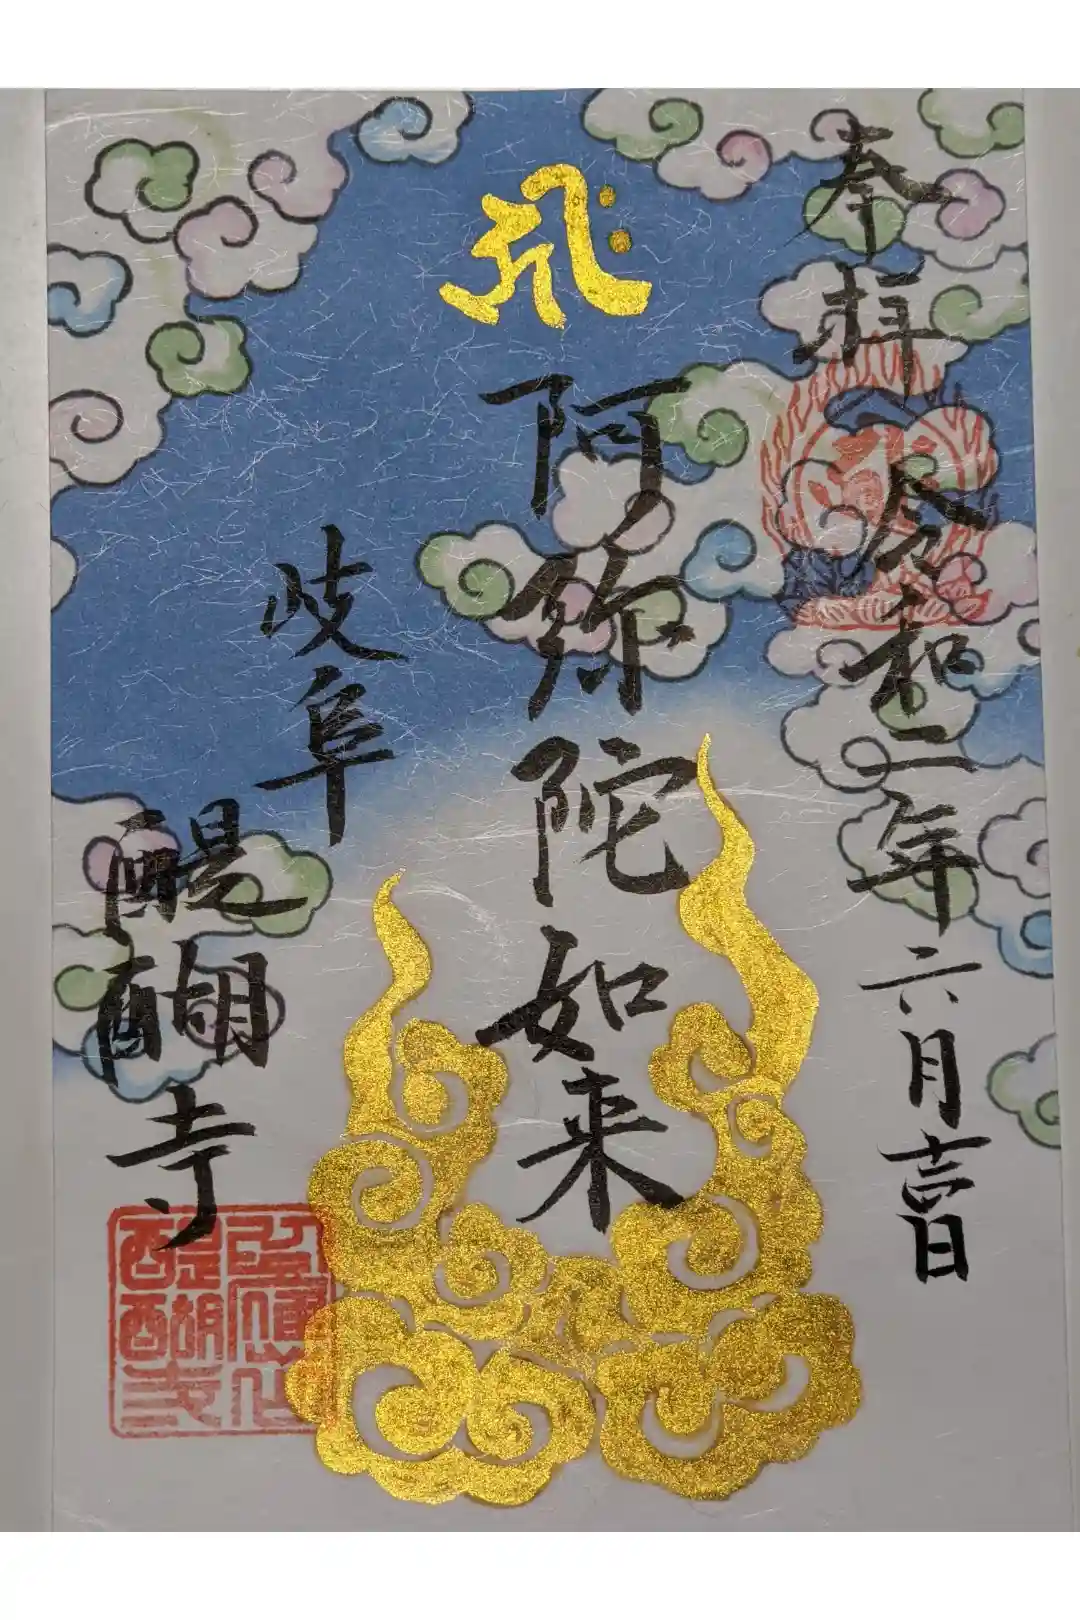 奉拝 令和二年六月吉日
𑖮𑖿𑖨𑖱𑖾
阿弥陀如来
岐阜
醍醐寺